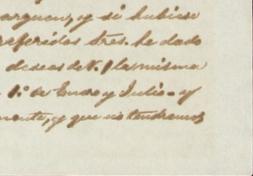 arguen, y si hubiese
referidos tres. he dado
deseas de V. p la misma
1.º de Enero y Julio - y
mente, y que no tendremos